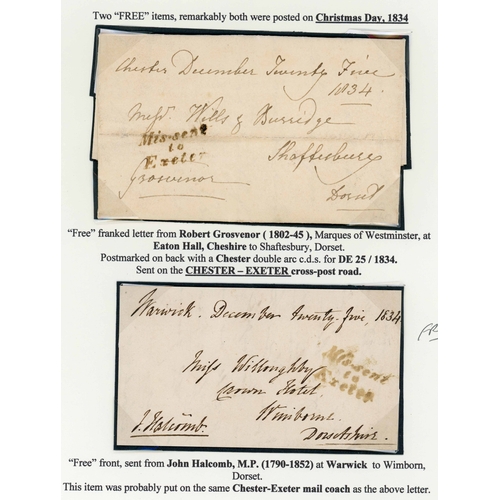 Two “FREE” items, remarkably both were posted on Christmas Day, 1834
Chester December Twenty Five
1834.
Messrs. Wills & Burridge
Mis-sent
to
Exeter
Shaftesbury
Grosvenor
Dorset
“Free” franked letter from Robert Grosvenor ( 1802-45 ), Marques of Westminster, at
Eaton Hall, Cheshire to Shaftesbury, Dorset.
Postmarked on back with a Chester double arc c.d.s. for DE 25 / 1834.
Sent on the CHESTER – EXETER cross-post road.
Warwick. December twenty five, 1834
Miss Willoughby
Mis-sent
to
Exeter
Crown Hotel,
Wimborne.
J. Halcomb.
Dorsetshire.
“Free” front, sent from John Halcomb, M.P. (1790-1852) at Warwick to Wimborn,
Dorset.
This item was probably put on the same Chester-Exeter mail coach as the above letter.